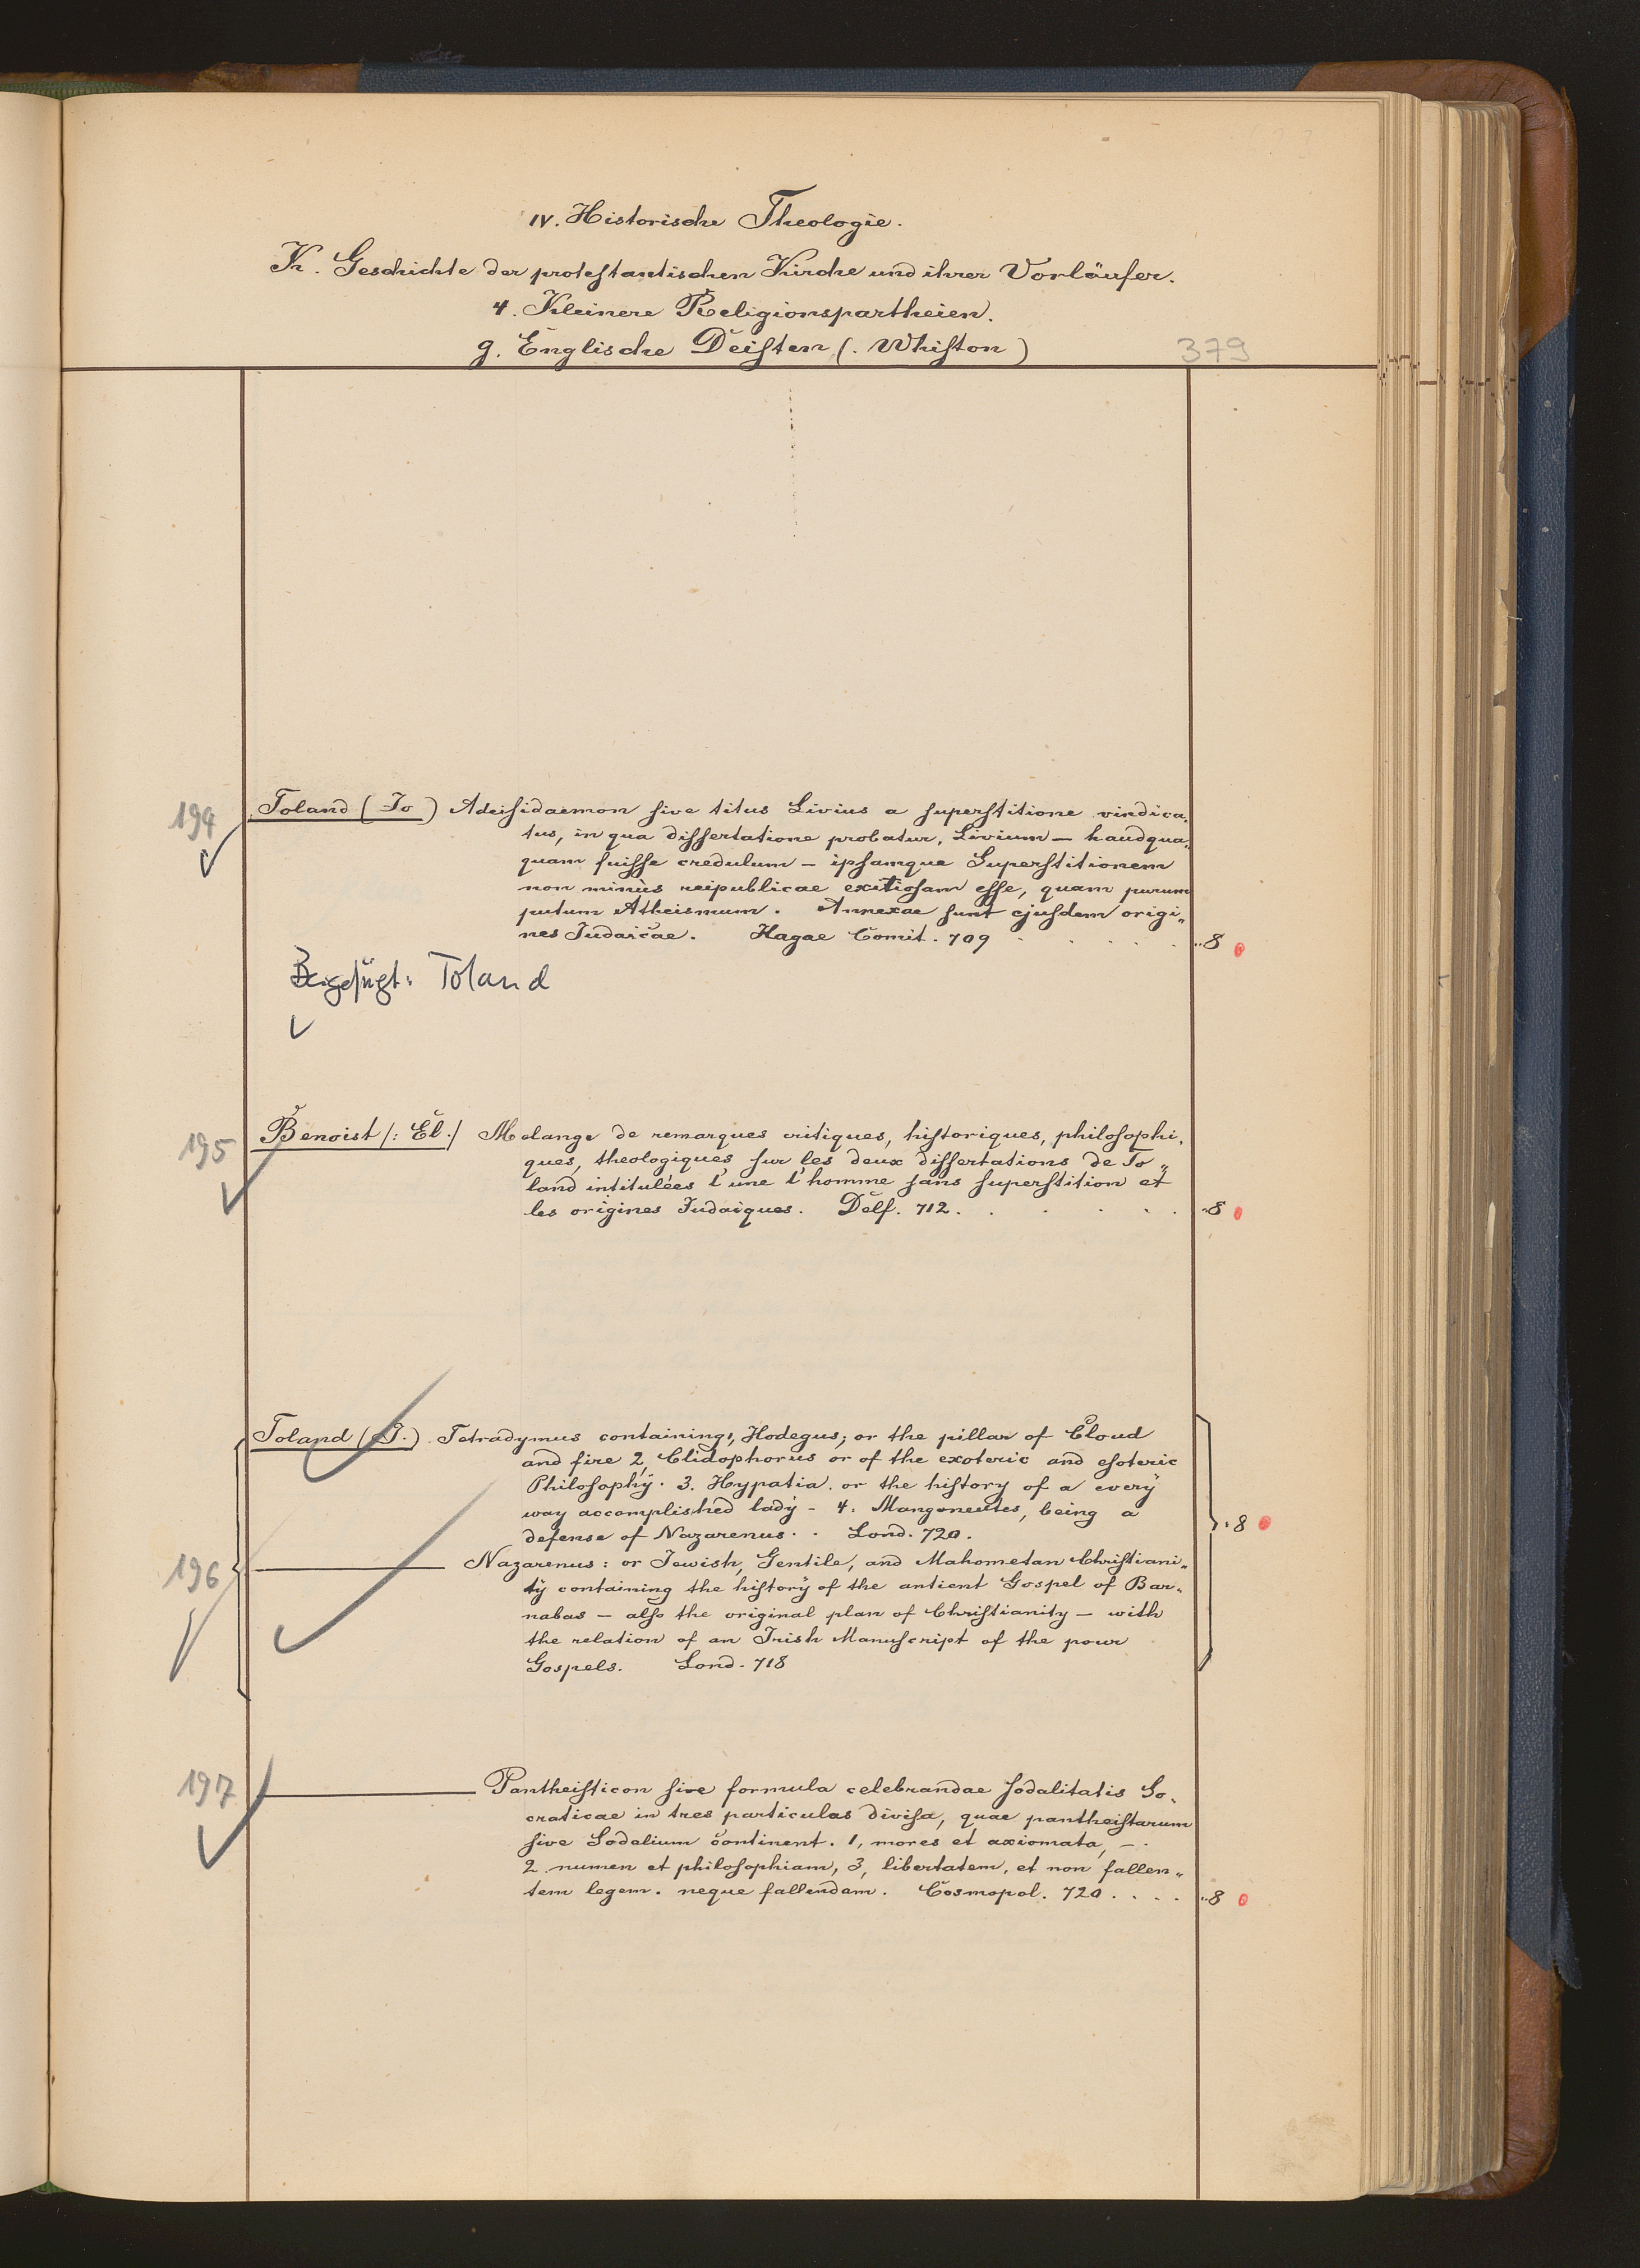 IV. Historische Theologie.
K. Geschichte der protestantischen Kirche und ihrer Vorläufer.
4. Kleinere Religionspartheien.
g. Englische Deisten (. Whiston)
379
194
Toland (Jo) Adeisidaemon sive titus Livius a superstitione vindica„
tus, in qua dissertatione probatur, Livium – haudqua„
quam fuisse credulum – ipsamque Superstitionem
non minùs reipublicae exitiosam esse, quam purum
putum Atheismum. Annexae sunt ejusdem origi„
nes Judaicae. Hagae Comit. 709 . . . . . „8
Beigefügt: Toland
195
Benoist /: El :/ Melange de remarques critiques, historiques, philosophi„
ques, theologiques sur les deux dissertations de To„
land intitulées l'une l'homme sans superstition et
les origines Judaiques. Delf. 712. . . . . . „8
Toland (J.) Tetradymus containing 1, Hodegus; or the pillar of Cloud
and fire 2, Clidophorus or of the exoteric and esoteric
Philosophy. 3. Hypatia. or the history of a every
way accomplished lady – 4. Mangoneutes, being a
defense of Nazarenus. . Lond. 720.
„8
196
Nazarenus: or Jewish, Gentile, and Mahometan Christiani„
ty containing the history of the antient Gospel of Bar„
nabas – also the original plan of Christianity – with
the relation of an Irish Manuscript of the pour
Gospels. Lond. 718
197
Pantheisticon sive formula celebrandae sodalitatis So„
craticae in tres particulas divisa, quae pantheistarum
sive Sodalium continent. 1, mores et axiomata, –
2. numen et philosophiam, 3, libertatem, et non fallen„
tem legem. neque fallendam. Cosmopol. 720 . . . . „8